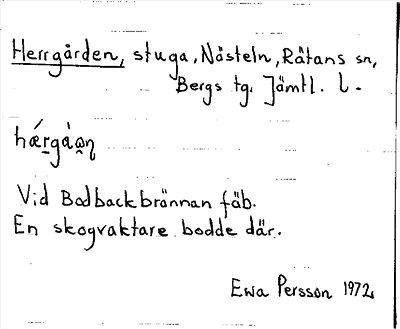 Herrgården, stuga, Nästeln, Rätans sn,
Bergs tg. Jämtl. l.
hǽr̠gàa̠n̥
Vid Bodbackbrännan fäb.
En skogvaktare bodde där.
Ewa Persson 1972